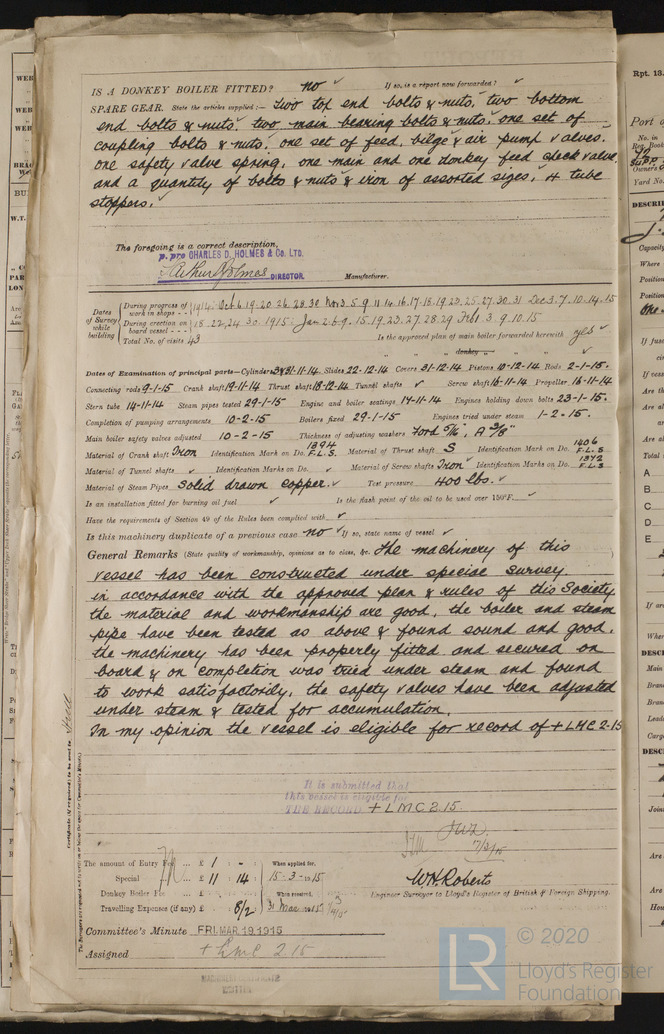 IS A DONKEY BOILER FITTED? no ✓ If so, is a report now forwarded? ✓
SPARE GEAR. State the articles supplied:— Two top end bolts & nuts, two bottom
end bolts & nuts, two main bearing bolts & nuts, one set of
coupling bolts & nuts, one set of feed, bilge & air pump valves.
one safety valve spring, one main and one donkey feed check valve
and a quantity of bolts & nuts & iron of assorted sizes, 4 tube
stoppers.
The foregoing is a correct description,
p. pro CHARLES D. HOLMES & Co. LTD.
Arthur Holmes DIRECTOR. Manufacturer.
Dates of Survey while building
During progress of work in shops - - 1914: Oct 6.19.20.26.28.30 Nov 3.5.9.11.14.16.17.18.19.20.25.27.30.31 Dec 3.7.10.14.15
During erection on board vessel - - - 18.22.24.30.1915: Jan 2.6.9.15.19.23.27.28.29 Feb 1.3.9.10.15
Total No. of visits 43 Is the approved plan of main boiler forwarded herewith yes ✓
" " donkey " "
Dates of Examination of principal parts—Cylinders 3&31-11-14 Slides 22-12-14 Covers 31-12-14 Pistons 10-12-14 Rods 2-1-15.
Connecting rods 9-1-15 Crank shaft 19-11-14 Thrust shaft 18-12-14 Tunnel shafts ✓ Screw shaft 16-11-14 Propeller 16-11-14
Stern tube 14-11-14 Steam pipes tested 29-1-15 Engine and boiler seatings 17-11-14 Engines holding down bolts 23-1-15.
Completion of pumping arrangements 10-2-15 Boilers fixed 29-1-15 Engines tried under steam 1-2-15.
Main boiler safety valves adjusted 10-2-15 Thickness of adjusting washers Ford 5/16", A 3/8"
Material of Crank shaft Iron Identification Mark on Do. 1394 F.L.S. Material of Thrust shaft S Identification Mark on Do. 1406 F.L.S
Material of Tunnel shafts ✓ Identification Marks on Do. ✓ Material of Screw shafts Iron Identification Marks on Do. 1372 F.L.S
Material of Steam Pipes Solid drawn copper. ✓ Test pressure 400 lbs. ✓
Is an installation fitted for burning oil fuel ✓ Is the flash point of the oil to be used over 150°F. ✓
Have the requirements of Section 49 of the Rules been complied with ✓
Is this machinery duplicate of a previous case no ✓ If so, state name of vessel ✓
General Remarks (State quality of workmanship, opinions as to class, &c. The machinery of this
vessel has been constructed under special survey
in accordance with the approved plan & rules of this Society
the material and workmanship are good, the boiler and steam
pipe have been tested as above & found sound and good.
the machinery has been properly fitted and secured on
board & on completion was tried under steam and found
to work satisfactorily, the safety valves have been adjusted
under steam & tested for accumulation.
In my opinion the vessel is eligible for record of + LMC 2-15
It is submitted that
this vessel is eligible for
THE RECORD. + LMC 2.15.
The amount of Entry Fee ... £ 1 : - : When applied for,
Special ... £ 11 : 14 : 15-3-1915
Donkey Boiler Fee ... £ When received,
Travelling Expenses (if any) £ : 8/2 31 Mar 1915
W.H. Roberts
Engineer Surveyor to Lloyd's Register of British & Foreign Shipping.
Committee's Minute FRI. MAR. 19. 1915
Assigned + LMC 2.15
MACHINERY CERTIFICATE
WRITTEN
LR © 2020
Lloyd's Register
Foundation
Rpt. 13.
Port o